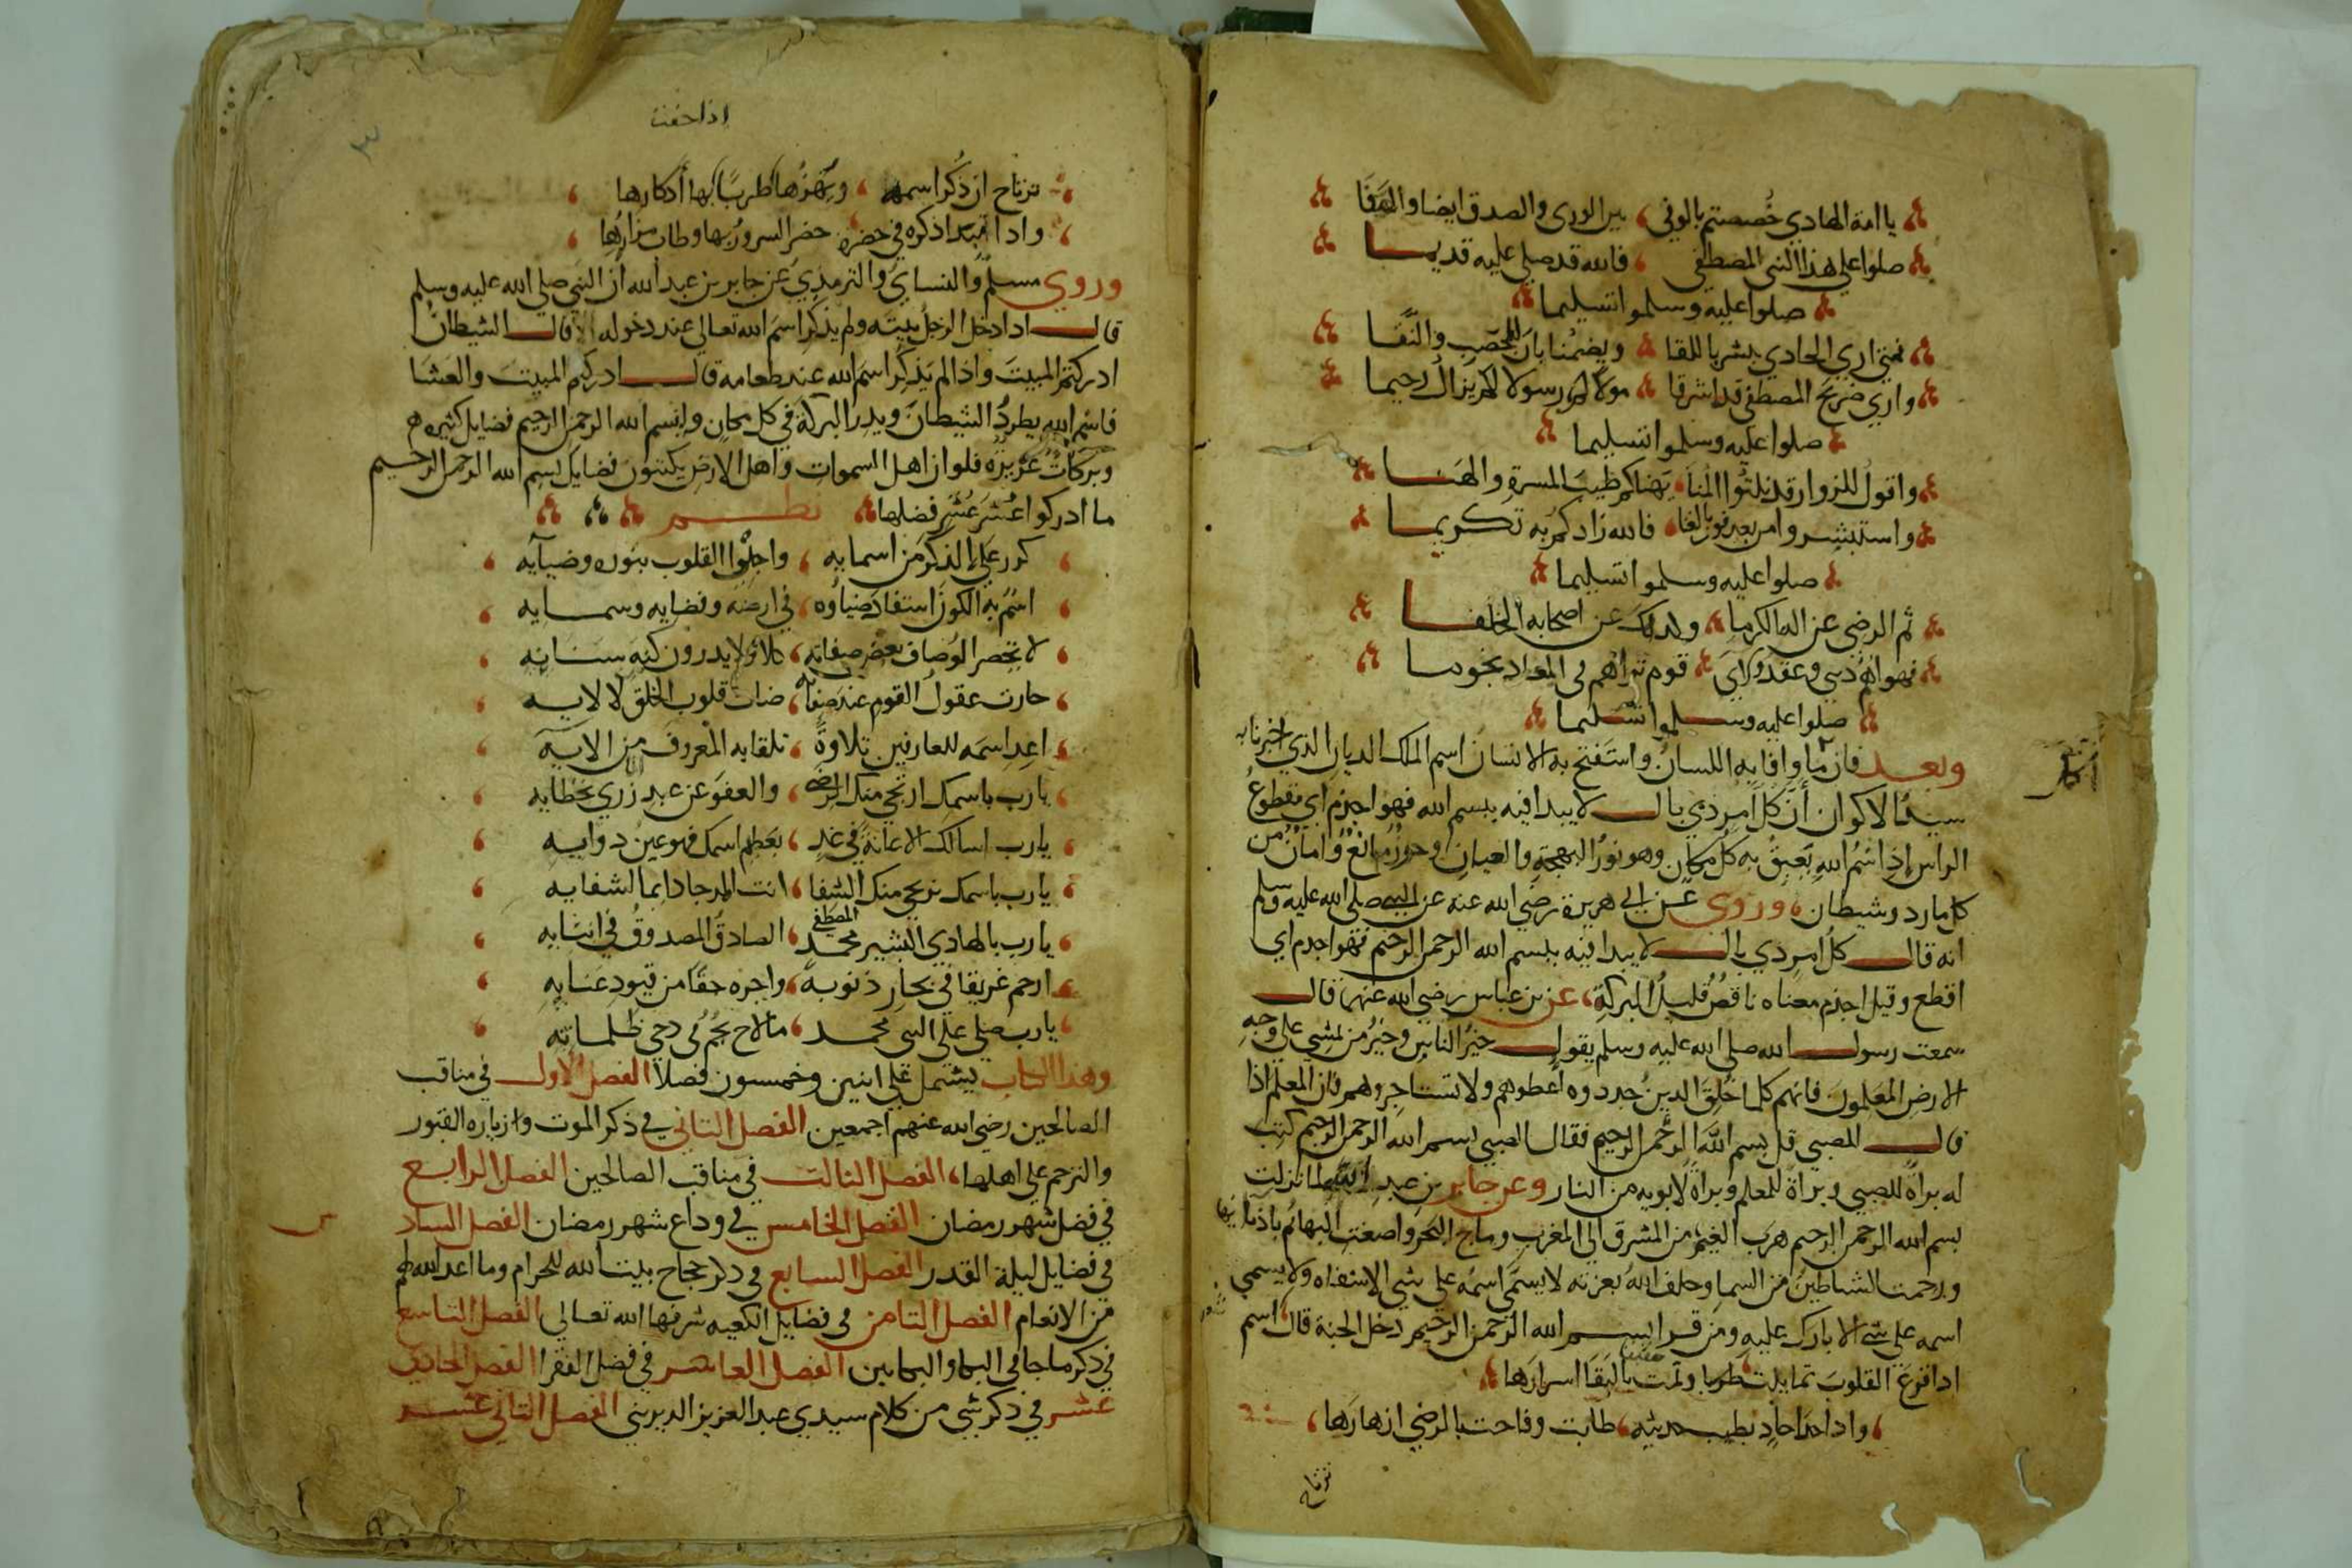 يا امة الهادي خصصتم بالوفي ، بين الوري والصدق ايضا والصفا
صلوا علي هذا النبي المصطفي ، فالله قد صلي عليه قديما
صلوا عليه وسلموا تسليما
فمتي اري الحادي يبشر باللقا ويضمنا بان المحصب والنقا
واري ضريح المصطفي قد اشرقا مولا لم رسولا لم يزال رحيما
صلوا عليه وسلموا تسليما
واقول للزوار قد نلتوا المنا يهناكم طيب المسرة والهنا
واستبشروا من بعد فوز بالغنا فالله زادكم به تكريما
صلوا عليه وسلموا تسليما
ثم الرضي عن اله الكرما وكذلك عن اصحابه الخلفا
فهواهم ديني وعقد ولاي قوم تراهم في المعاد نجوما
صلوا عليه وسلموا تسليما
وبعد فان ما وافا به اللسان واستفتح به الانسان اسم الملك الديان الذي اخبرنا به
سيد الاكوان أن كل امر ذي بال لا يبدا فيه ببسم الله فهو اجذم اي مقطوع
الراس إذ اسم الله يعبق به كل مكان وهو نور البهجة والعيان وحرز مانع وامان من
كل مارد وشيطان ، وروي عن ابي هريرة رضي الله عنه عن النبي صلي الله عليه وسلم
انه قال كل امر ذي بال لا يبدا فيه ببسم الله الرحمن الرحيم فهو اجذم اي
اقطع وقيل اجذم معناه ناقص قليل البركة ، عن بن عباس رضي الله عنهما قال
سمعت رسول الله صلي الله عليه وسلم يقول خير الناس وخير من يمشي علي وجه
الارض المعلمون فانهم كلما خلق الدين جددوه اعطوهم ولا تستاجروهم فان المعلم اذا
قال للصبي قل بسم الله الرحمن الرحيم فقال الصبي بسم الله الرحمن الرحيم كتب
له براة للصبي وبراة للمعلم وبراة لابويه من النار وعن جابر بن عبد الله لما نزلت
بسم الله الرحمن الرحيم هرب الغيم من المشرق الي المغرب وماج البحر واصغت البهائم باذنايها
ورجمت الشياطين من السما وحلف الله بعزته لا يسمي اسمه علي شي الا شفاه ولا يسمي
اسمه علي شي الا بارك عليه ومن قرا بسم الله الرحمن الرحيم دخل الجنة قال اسم
اذا قرع القلوب تمايلت طربا ونمت باللقا اسرارها
، واذا حدا حاد بطيب حديثه ، طابت وفاحت بالرضي ازهارها ،
ترتاح
اذا خفت
٣
ترتاح ان ذكر اسمه ، ويهزها طربا بها أذكارها ،
واذا تبدا ذكره في حضرة حضر السرور بها وطاب مزارها ،
وروي مسلم والنساي والترمذي عن جابر بن عبد الله ان النبي صلي الله عليه وسلم
قال اذا دخل الرجل بيته ولم يذكر اسم الله تعالي عند دخوله قال الشيطان
ادركتم المبيت واذا لم يذكر اسم الله عند طعامه قال ادركتم المبيت والعشا
فاسم الله يطرد الشيطان ويدر البركة في كل مكان ولبسم الله الرحمن الرحيم فضايل كثيره
وبركات غزيزه فلو ان اهل السموات واهل الارض يكتبون فضايل بسم الله الرحمن الرحيم
ما ادركوا عشر عشر فضلها نظم
، كرر علي الذكر من اسمايه ، واجلوا القلوب بنوره وضيآيه ،
، اسم به الكون استفاد ضياؤه ، في ارضه وفضايه وسمايه ،
، لا تحصر الوصاف بعض صفاته ، كلا ولا يدرون كنه سنايه ،
، حارت عقول القوم عند صفاته ، ضات قلوب الخلق لالايه ،
، اعد اسمه للعارفين تلاوة ، تلقا به المعروف من الايه ،
، يارب باسمك ارتجي منك الرضي ، والعفو عن عبد زري بخطايه ،
، يارب اسالك الاعانة في غد ، بعظم اسمك فهو عين دوايه ،
، يارب باسمك نرتجي منك الشفا ، انت المرجا دايما لشفايه ،
، يارب بالهادي البشير محمد المصطفي ، الصادق المصدوق في انبايه ،
، ارحم غريقا في بحار ذنوبه ، واجره حقا من قيود عنايه ،
، يارب صلي علي النبي محمد ، ما لاح نجم في دجي ظلماته ،
وهذا الكتاب يشتمل علي اثنين وخمسون فصلا الفصل الاول في مناقب
الصالحين رضي الله عنهم اجمعين الفصل الثاني في ذكر الموت وازياره القبور
والترحم علي اهلها ، الفصل الثالث في مناقب الصالحين الفصل الرابع
في فضل شهر رمضان الفصل الخامس في وداع شهر رمضان الفصل الساد
س
في فضايل ليلة القدر الفصل السابع في ذكر حجاج بيت الله الحرام وما اعد الله لهم
من الانعام الفصل الثامن في فضايل الكعبه شرفها الله تعالي الفصل التاسع
في ذكر ما جا في البكا والبكايين الفصل العاشر في فضل الفقرا الفصل الحادي
عشر في ذكر شي من كلام سيدي عبد العزيز الديريني الفصل الثاني عشر